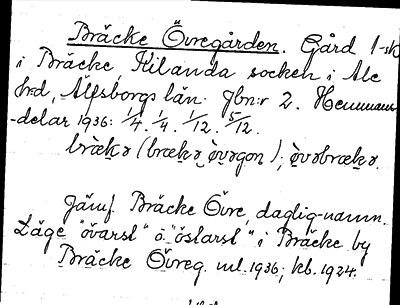 Bräcke Övregården. Gård 1-sk
i Bräcke, Kilanda socken i Ale
hrd, Älfsborgs län. Jbnr 2. Hemmans-
-delar 1936: 1/4. 1/4. 1/12. 5/12.
brækə (brækə òvrgon); òvrbrækə.
Jämf. Bräcke Övre, daglig-namn.
Läge "övarst" o "östarst" i Bräcke by
Bräcke Övreg. ml. 1936, kb. 1924.